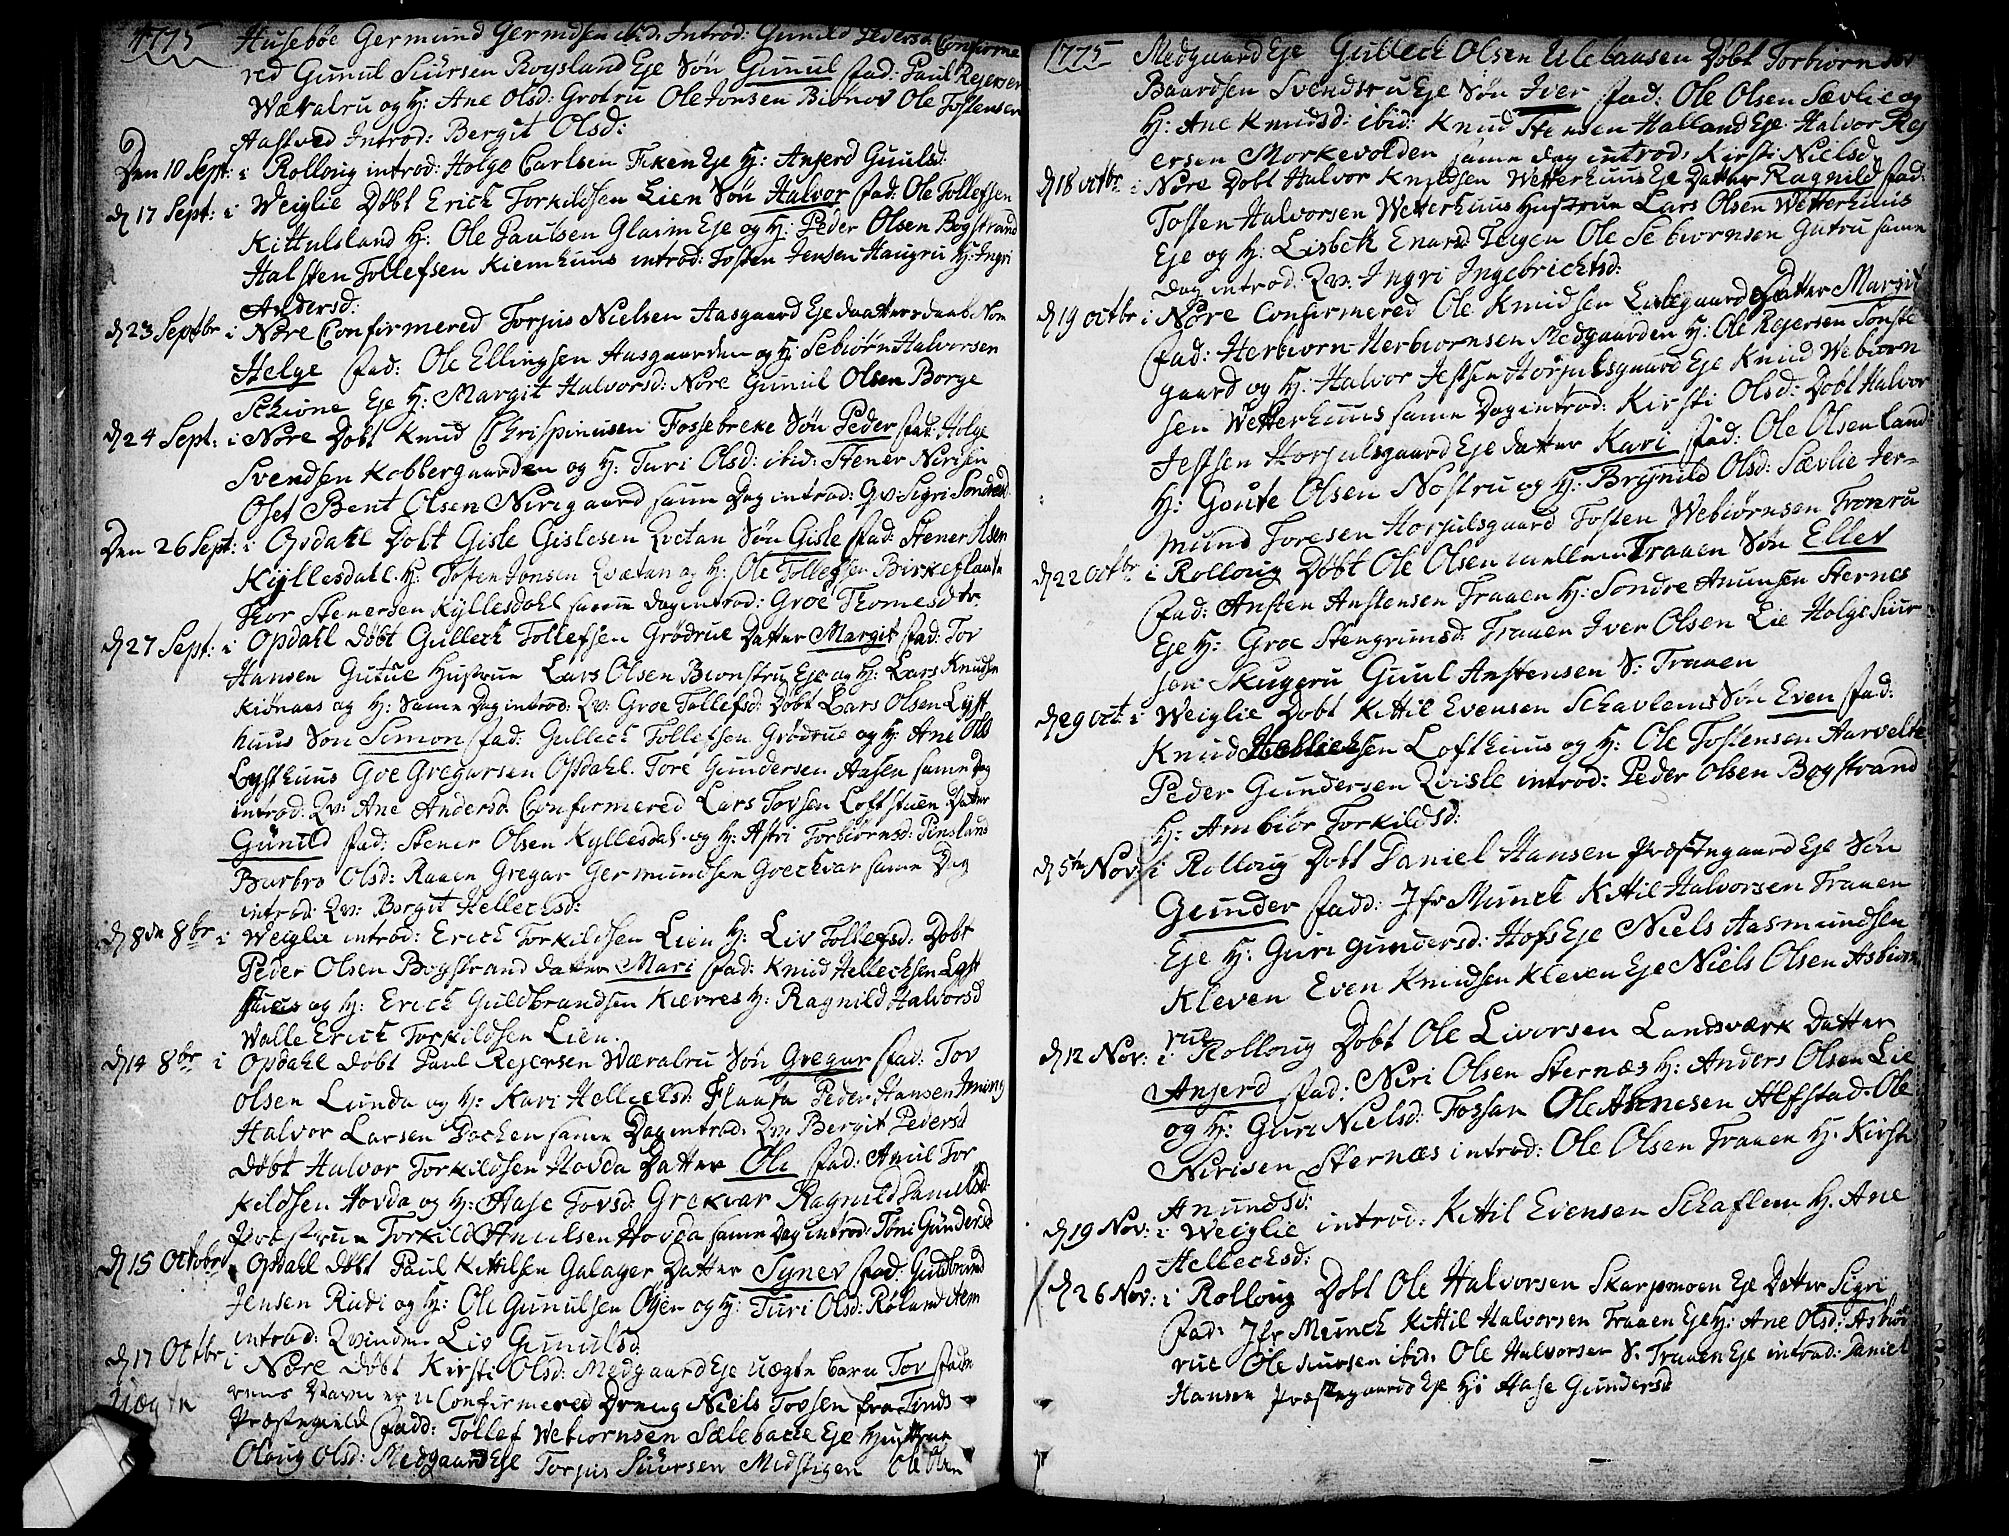 1775 Husebøe Germund Germdsen ibid. Introd: Gunild Pedersd Confirme
red Gunul Siursen Roysland Eje Søn Gunul fad: Paul Rejersen
Wæralru og H: Ane Olsd: Grotru Ole Jonsen Biønov Ole Tostensen
Aastved Introd: Bergit Olsd:
Den 10 Sept: i Rolloug introd: Holge Carlsen Fiken Eje H: Anjerd Guulsd:
d 17 Sept: i Weiglie Døbt Erich Torkildsen Lien Søn Halvor fad: Ole Tollefsen
Kittulsland H: Ole Paulsen Glaim Eje og H: Peder Olsen Bogstrand
Halsten Tollefsen Kiemhuus introd: Tosten Jensen Haugru H: Ingri
Andersd:
d 23 Septbr i Nore Confirmered Torjus Nielsen Aasgaard Eje daatter daab Nom
Helge fad: Ole Ellingsen Aasgaarden og H: Sebiørn Halvorsen
Schione Eje H: Margit Halvorsd: Nore Gunul Olsen Borge
d 24 Sept: i Nore Døbt Knud Chrispinusen Fossebreke Søn Peder fad: Holge
Svendsen Kobbergaarden og H: Turi Olsd: ibid: Stener Nirisen
Oset Bent Olsen Nirigaard samme Dag introd: Qv: Sigri Sondresd
Den 26 Sept: i Opdahl Døbt Gisle Gislesen Qvetan Søn Gisle fad: Stener Olsen
Kyllesdahl H: Tosten Jonsen Qvætan og H: Ole Tollefsen Birkeflaata
Thor Stenersen Kyllesdahl samme dag introd: Groe Thomesdtr
d 27 Sept: i Opdahl Døbt Gulleck Tollefsen Grødrue Datter Margit fad: Tov
Hansen Gutue Hustrue Lars Olsen Bionstru Eje og H: Lars Knudsen
Kiønaas og H: Same Dag introd: Qv: Groe Tollefsd: Døbt Lars Olsen Lyst
huus Søn Simon fad: Gulleck Tollefsen Grødrue og H: Ane Olsd
Lysthuus Goe Gregarsen Opdahl. Tore Gundersen Aasen same dag
introd: Qv: Ane Andersd: Confirmered Lars Tovsen Loftstuen Datter
Gunild fad: Stener Olsen Kyllesdal og H: Astri Torbiørnsd: Penslaus
Barbro Olsd: Raaen Gregar Germundsen Goeckvar same Dag
introd: Qv: Borgit Hellechsd:
d 8de 8br i Weiglie introd: Erich Torkildsen Lien H: Liv Tollefsd: Døbt
Peder Olsen Bogstrand datter Mari fad: Knud Hellechsen Lyst
huus og H: Erich Guldbrandsen Kierres H: Ragnild Halvorsd
Walle Erich Torkildsen Lien.
d 14 8br i Opdahl døbt Paul Rejersen Wæralru Søn Gregar fad: Tov
Olsen Lunda og H: Kari Hellechsd: Flaata Peder Hansen Iming
Halvor Larsen Dochen same Dag introd: Qv: Bergit Pedersd
døbt Halvor Torkildsen Hovda Datter Oli fad: Anul Tor
kildsen Hovda og H: Aase Tovsd: Grekvar Ragnild Danielsd:
Præstrue Torkild Anulsen Hovda same Dag introd: Toni Gundersd
d 15 Octobr i Opdahl døbt Paul Kittilsen Galager Datter Synev fad: Guldbrand
Jensen Riudi og H: Ole Gunulsen Øyen og H: Turi Olsd: Røland Item
introd: Qvinden Liv Gunulsd
d 17 Octbr i Nore døbt Kirsti Olsd: Medgaard Eje uægte barn Tov fade
uægte rens Navn er u Confirmered Dreng Niels Tovsen fra Tinds
Præstegield fadd: Tollef Webiørnsen Sælebacke Eje Hustrue
Oloug Olsd: Medgaard Eje Torjus Siursen Midstigen Ole Olsen
1775 Medgaard Eje Gulleck Olsen Ulebaasen Døbt Torbiørn
Baardsen Svendsru Eje Søn Iver fad: Ole Olsen Sævlie og
H: Ane Knudsd: ibid: Knud Stensen Halland Eje Halvor Rej
ersen Morkevolden same dag introd: Kirsti Nielsd
d 18 octbr i Nore Døbt Halvor Knudsen Wetterhuus Eje Datter Ragnild fad:
Tosten Halvorsen Wetterhuus Hustrue Lars Olsen Wetterhuus
Eje og H: Lisbeth Enarsd: Teigen Ole Sebiornsen Gutru same
Dag introd: Qv: Ingri Ingebrichtsd:
d 19 octbr i Nore Confirmered Ole Knudsen Lislegaard Datter Margit
fad: Herbiorn Herbiornsen Medgaarden H: Ole Rejersen Sonste
gaard og H: Halvor Jestsen Horjulsgaard Eje Knud Webiorn
sen Wetterhuus same Dag introd: Kirsti Olsd: Døbt Halvor
Jestsen Horjulsgaard Eje datter Kari fad: Ole Olsen Land
H: Goute Olsen Nostru og H: Brynild Olsd: Sævlie Ier=
mund Toresen Horjulsgaard Tosten Webiørnsen Tronru
d 22 octbr i Rolloug Døbt Ole Olsen mellem Traaen Søn Ellev
fad: Ansten Anstensen Traaen H: Sondre Anunsen Sternes
Eje H: Groe Stengrimsd: Traaen Iver Olsen Lie Holge Siur
sen Skuggru Guul Anstensen S: Traaen
d 29 oct: i Weiglie Døbt Kittil Evensen Schavlem Søn Even fad:
Knud Hellichsen Lofthuus og H: Ole Tostensen Aarvelte
Peder Gundersen Qvisle introd: Peder Olsen Bogstrand
H: Ambiør Torkildsd:
d 5te Nov: i Rolloug Døbt Daniel Hansen Præstegaard Eje Søn
Gunder fadd: Jfr Munch Kittil Halvorsen Traaen
Eje H: Guri Gundersd: Hofs Eje Niels Aasmundsen
Kleven Even Knudsen Kleven Eje Niels Olsen Asbiørn
rue
d 12 Nov: i Rolloug Døbt Ole Livorsen Landsværk Datter
Anjerd fad: Niri Olsen Sternæs H: Anders Olsen Lie
og H: Guri Nielsd: Fossan Ole Arnesen Alfstad Ole
Nirisen Sternæs introd: Ole Olsen Traaen H: Kirsti
Anundsd:
d 19 Nov: i Weiglie introd: Kittil Evensen Schaflem H: Ane
Hellechsd:
d 26 Nov: i Rolloug Døbt Ole Halvorsen Skarpmoen Eje Datter Sigri
fad: Jfr Munch Kittil Halvorsen Traaen Eje H: Ane Olsd: Asbiør
rue Ole Siursen ibid. Ole Halvorsen S: Traaen Eje introd: Daniel
Hansen Præstegaards Eje H: Aase Gundersd